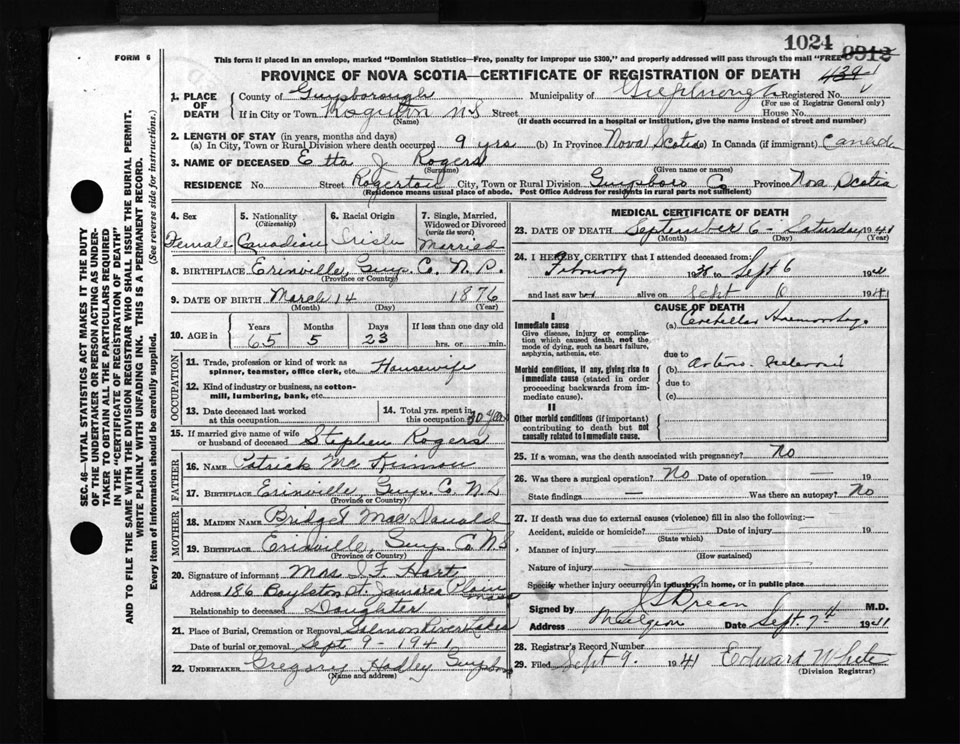 1024
FORM 6
This form if placed in an envelope, marked "Dominion Statistics—Free, penalty for improper use $300," and properly addressed will pass through the mail "FREE"
0912
PROVINCE OF NOVA SCOTIA—CERTIFICATE OF REGISTRATION OF DEATH
1. PLACE OF DEATH
County of Guysborough Municipality of Registered No.
(For use of Registrar General only)
If in City or Town N S Street House No.
(Name) (If death occurred in a hospital or institution, give the name instead of street and number)
2. LENGTH OF STAY (in years, months and days)
(a) In City, Town or Rural Division where death occurred 9 yrs (b) In Province Nova Scotia (c) In Canada (if immigrant) Canada
3. NAME OF DECEASED Etta J. Rogers
(Surname) (Given name or names)
RESIDENCE No. Street Rogerton City, Town or Rural Division Guysboro Co Province Nova Scotia
(Residence means usual place of abode. Post Office Address for residents in rural parts not sufficient)
4. Sex
Female
5. Nationality
(Citizenship)
Canadian
6. Racial Origin
Irish
7. Single, Married, Widowed or Divorced
(write the word)
Married
8. BIRTHPLACE Erinville, Guys. Co. N. S.
(Province or Country)
9. DATE OF BIRTH March 14 1876
(Month) (Day) (Year)
10. AGE in
Years Months Days If less than one day old
65 5 23 hrs. or min.
OCCUPATION
11. Trade, profession or kind of work as spinner, teamster, office clerk, etc. Housewife
12. Kind of industry or business, as cotton-mill, lumbering, bank, etc.
13. Date deceased last worked at this occupation
14. Total yrs. spent in this occupation
15. If married give name of wife or husband of deceased Stephen Rogers
FATHER
16. NAME Patrick Mc Kinnon
17. BIRTHPLACE Erinville, Guys. Co. N. S
(Province or Country)
MOTHER
18. MAIDEN NAME Bridget Mac Donald
19. BIRTHPLACE Erinville, Guys. Co. N. S
(Province or Country)
20. Signature of informant Mrs J. F. Hart
Address 186 Boylston St. Jamaica Plain Mass
Relationship to deceased Daughter
21. Place of Burial, Cremation or Removal Salmon River Lakes
Date of burial or removal Sept 9 1941
22. UNDERTAKER Gregory Hadley Guysboro
(Name and address)
MEDICAL CERTIFICATE OF DEATH
23. DATE OF DEATH September 6 - Saturday 1941
(Month) (Day) (Year)
24. I HEREBY CERTIFY that I attended deceased from:
to Sept 6 1941
and last saw her alive on Sept 6 1941
CAUSE OF DEATH
I
Immediate cause
Give disease, injury or complication which caused death, not the mode of dying, such as heart failure, asphyxia, asthenia, etc.
(a)
due to
Morbid conditions, if any, giving rise to immediate cause (stated in order proceeding backwards from immediate cause).
(b)
due to
(c)
II
Other morbid conditions (if important) contributing to death but not causally related to immediate cause.
25. If a woman, was the death associated with pregnancy? No
26. Was there a surgical operation? No Date of operation —
State findings — Was there an autopsy? No
27. If death was due to external causes (violence) fill in also the following:—
Accident, suicide or homicide? Date of injury 19
(State which)
Manner of injury
(How sustained)
Nature of injury
Specify whether injury occurred in industry, in home, or in public place
Signed by J S Brean M.D.
Address Mulgrave Date Sept 7th 1941
28. Registrar's Record Number
29. Filed Sept 9. 1941 Edward White
(Division Registrar)
SEC. 46—VITAL STATISTICS ACT MAKES IT THE DUTY
OF THE UNDERTAKER OR PERSON ACTING AS UNDER-
TAKER TO OBTAIN ALL THE PARTICULARS REQUIRED
IN THE "CERTIFICATE OF REGISTRATION OF DEATH"
AND TO FILE THE SAME WITH THE DIVISION REGISTRAR WHO SHALL ISSUE THE BURIAL PERMIT.
WRITE PLAINLY WITH UNFADING INK. THIS IS A PERMANENT RECORD.
Every item of information should be carefully supplied. (See reverse side for instructions.)